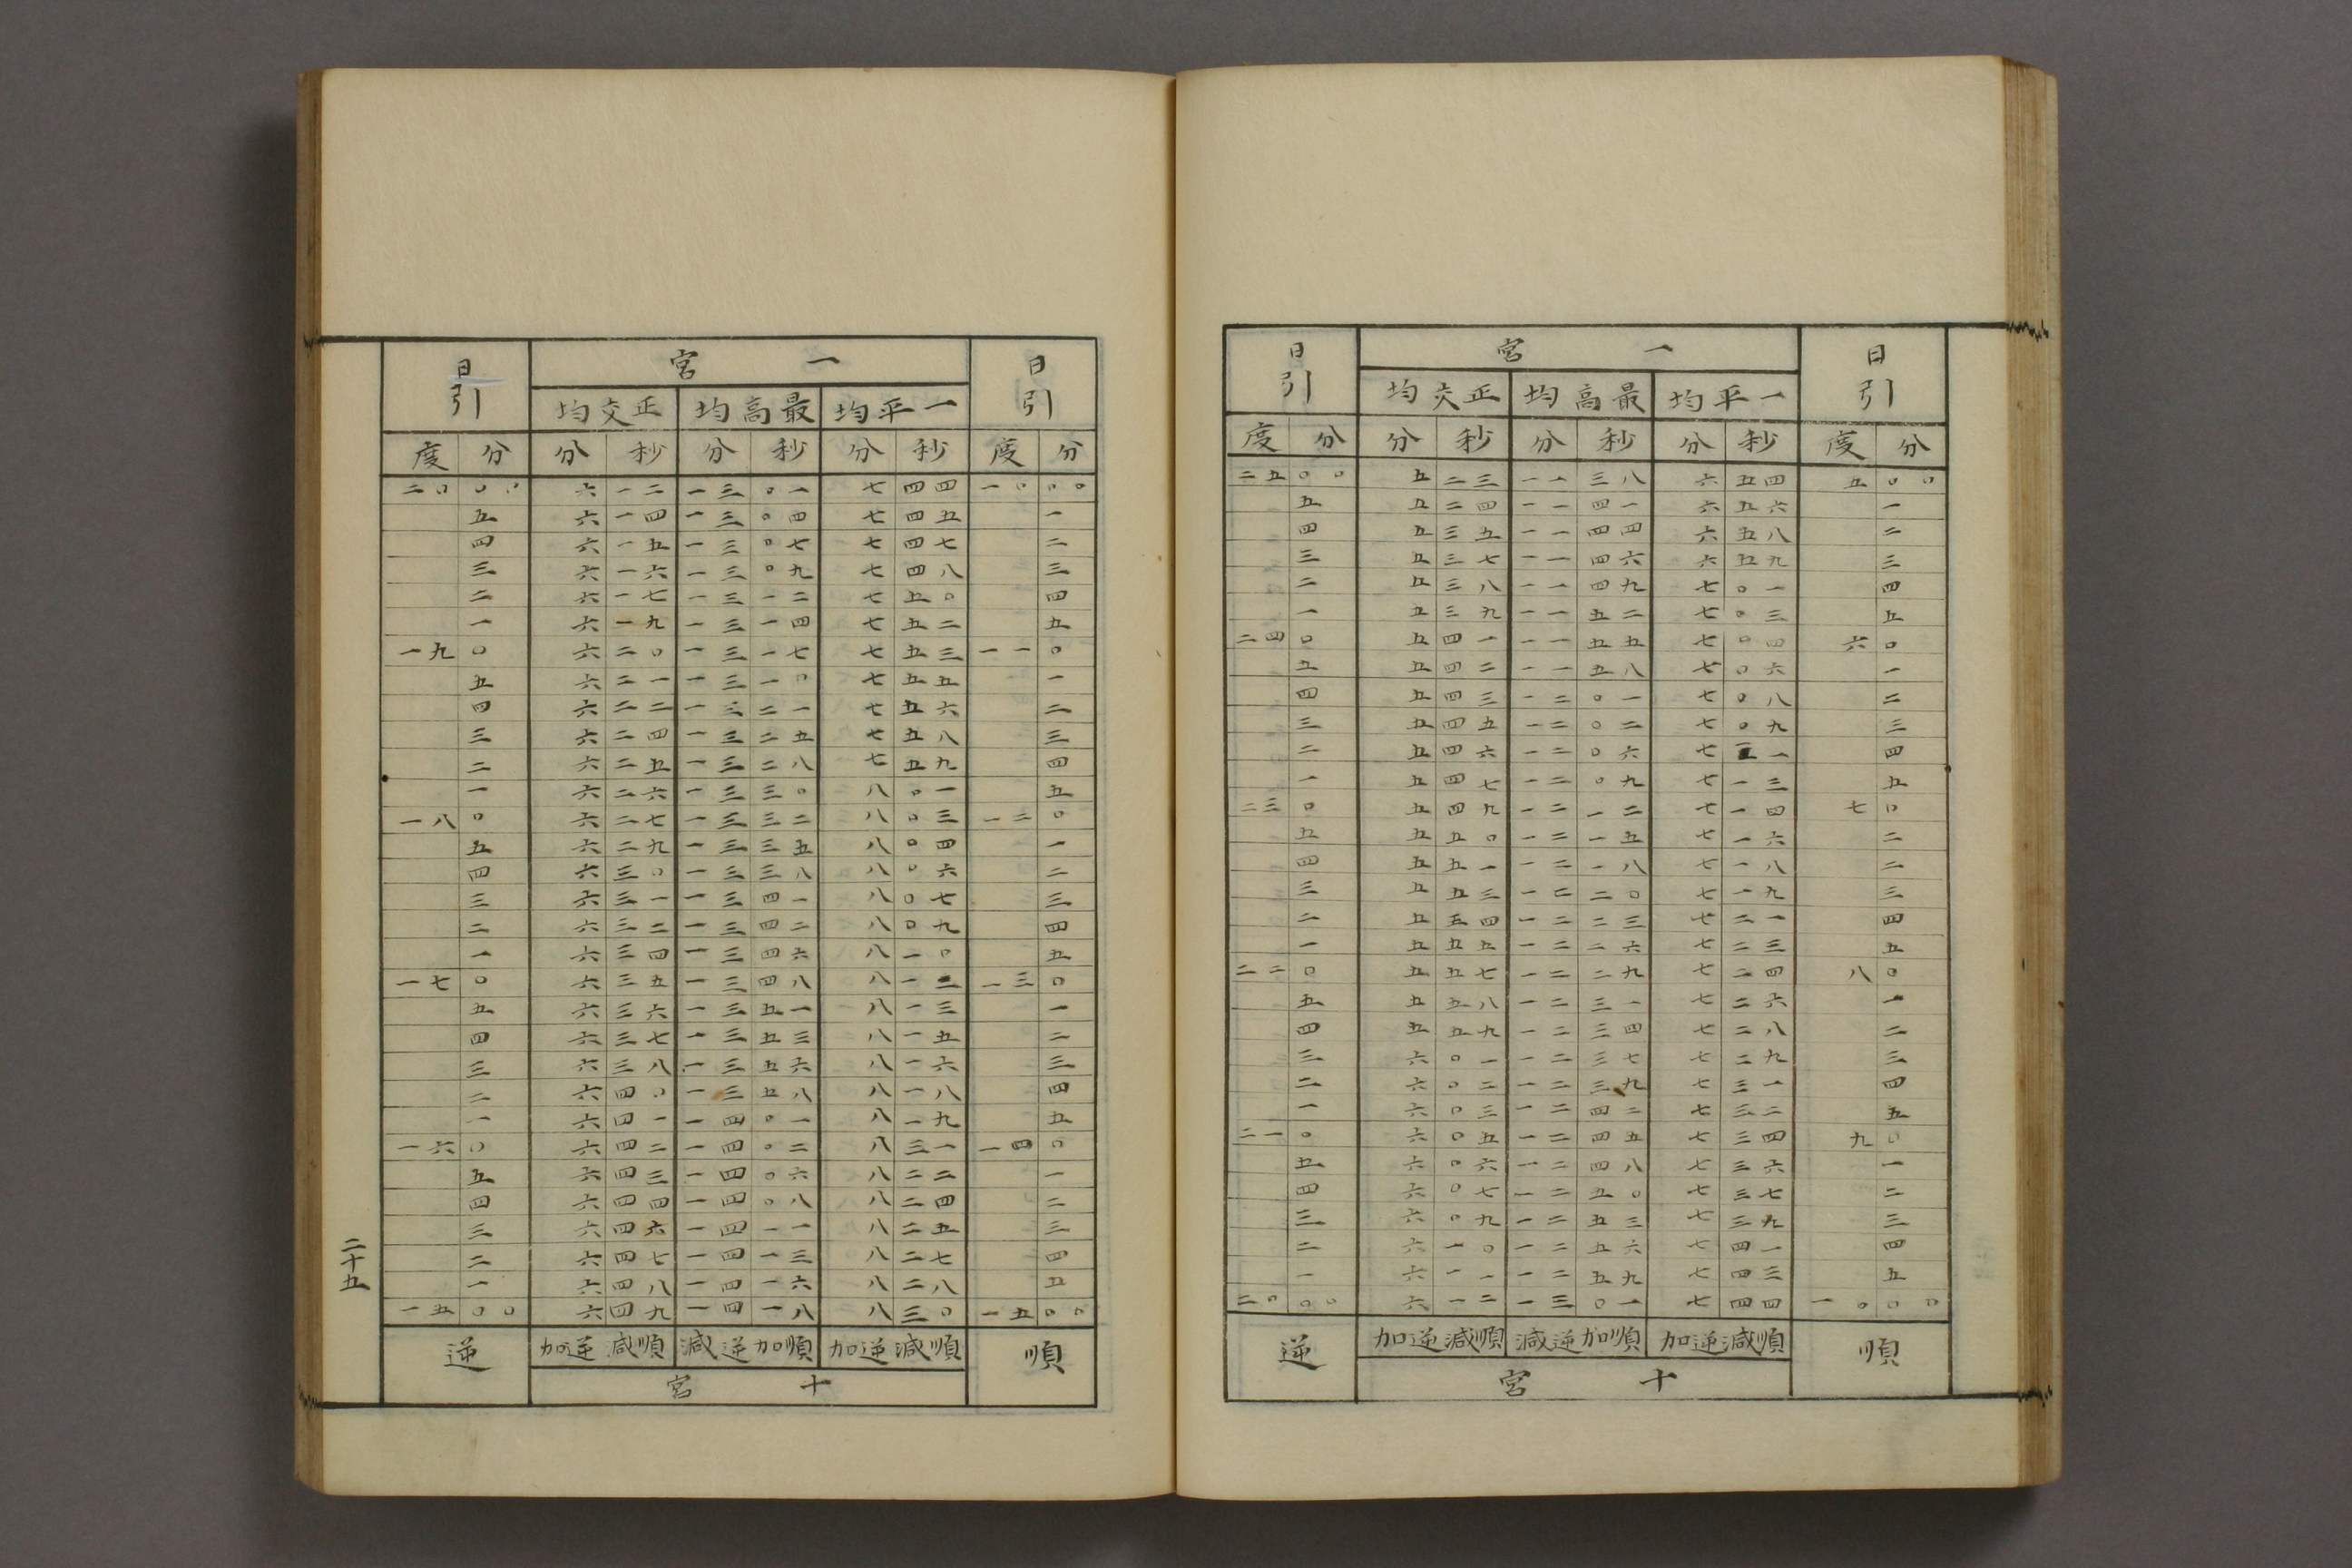 日引 一宮 日引
正交均 最高均 一平均
度 分 分 秒 分 秒 分 秒 度 分
二五 〇〇 五 二三 一一 三八 六 五四 五 〇〇
五 五 二四 一一 四一 六 五六 一
四 五 三五 一一 四四 六 五八 二
三 五 三七 一一 四六 六 五九 三
二 五 三八 一一 四九 七 〇一 四
一 五 三九 一一 五二 七 〇三 五
二四 〇 五 四一 一一 五五 七 〇四 六 〇
五 五 四二 一一 五八 七 〇六 一
四 五 四三 一二 〇一 七 〇八 二
三 五 四五 一二 〇二 七 〇九 三
二 五 四六 一二 〇六 七 一一 四
一 五 四七 一二 〇九 七 一三 五
二三 〇 五 四九 一二 一二 七 一四 七 〇
五 五 五〇 一二 一五 七 一六 二
四 五 五一 一二 一八 七 一八 二
三 五 五三 一二 二〇 七 一九 三
二 五 五四 一二 二三 七 二一 四
一 五 五五 一二 二六 七 二三 五
二二 〇 五 五七 一二 二九 七 二四 八 〇
五 五 五八 一二 三一 七 二六 一
四 五 五九 一二 三四 七 二八 二
三 六 〇一 一二 三七 七 二九 三
二 六 〇二 一二 三九 七 三一 四
一 六 〇三 一二 四二 七 三二 五
二一 〇 六 〇五 一二 四五 七 三四 九 〇
五 六 〇六 一二 四八 七 三六 一
四 六 〇七 一二 五〇 七 三七 二
三 六 〇九 一二 五三 七 三九 三
二 六 一〇 一二 五六 七 四一 四
一 六 一一 一二 五九 七 四三 五
二〇 〇〇 六 一二 一三 〇一 七 四四 一〇 〇〇
逆 順減逆加 順加逆減 順減逆加 順
十宮
日引 一宮 日引
正交均 最高均 一平均
度 分 分 秒 分 秒 分 秒 度 分
二〇 〇〇 六 一二 一三 〇一 七 四四 一〇 〇〇
五 六 一四 一三 〇四 七 四五 一
四 六 一五 一三 〇七 七 四七 二
三 六 一六 一三 〇九 七 四八 三
二 六 一七 一三 一二 七 五〇 四
一 六 一九 一三 一四 七 五二 五
一九 〇 六 二〇 一三 一七 七 五三 一一 〇
五 六 二一 一三 一〇 七 五五 一
四 六 二二 一三 二一 七 五六 二
三 六 二四 一三 二五 七 五八 三
二 六 二五 一三 二八 七 五九 四
一 六 二六 一三 三〇 八 〇一 五
一八 〇 六 二七 一三 三二 八 〇三 一二 〇
五 六 二九 一三 三五 八 〇四 一
四 六 三〇 一三 三八 八 〇六 二
三 六 三一 一三 四一 八 〇七 三
二 六 三二 一三 四二 八 〇九 四
一 六 三四 一三 四六 八 一〇 五
一七 〇 六 三五 一三 四八 八 一二 一三 〇
五 六 三六 一三 五一 八 一三 一
四 六 三七 一三 五三 八 一五 二
三 六 三八 一三 五六 八 一六 三
二 六 四〇 一三 五八 八 一八 四
一 六 四一 一四 〇一 八 一九 五
一六 〇 六 四二 一四 〇二 八 三一 一四 〇
五 六 四三 一四 〇六 八 二二 一
四 六 四四 一四 〇八 八 二四 二
三 六 四六 一四 一一 八 二五 三
二 六 四七 一四 一三 八 二七 四
一 六 四八 一四 一六 八 二八 五
一五 〇〇 六 四九 一四 一八 八 三〇 一五 〇〇
逆 順減逆加 順加逆減 順減逆加 順
十宮
二十五